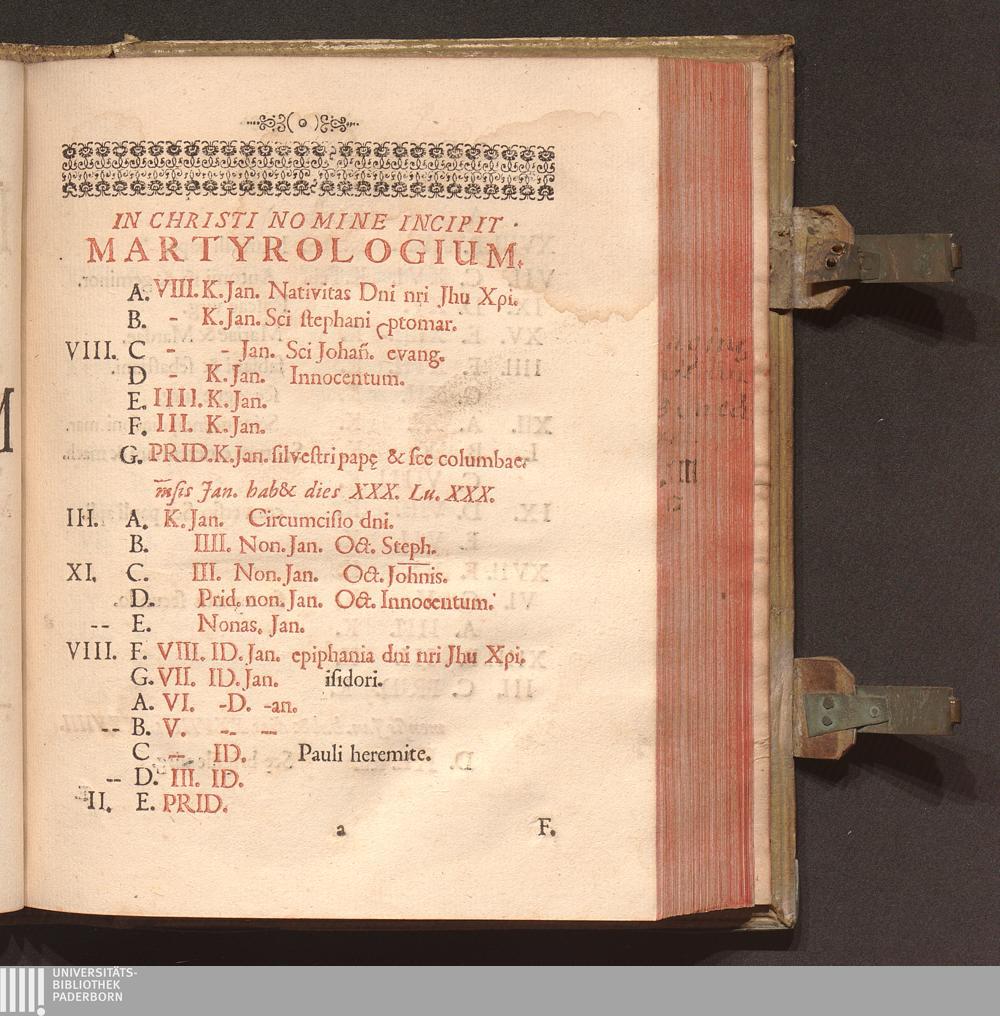 IN CHRISTI NOMINE INCIPIT
MARTYROLOGIUM.
A. VIII. K. Jan. Nativitas Dni nri Jhu Xpi.
B. - K. Jan. Sci ſtephani ptomar.
VIII. C - - Jan. Sci Johañ. evang.
D - K. Jan. Innocentum.
E. IIII. K. Jan.
F. III. K. Jan.
G. PRID. K. Jan. ſilveſtri papę & ſce columbae.
m̄ſis Jan. hab& dies XXX. Lu. XXX.
III. A. K. Jan. Circumciſio dni.
B. IIII. Non. Jan. Oct. Steph.
XI. C. III. Non. Jan. Oct. Johnis.
D. Prid. non. Jan. Oct. Innocentum.
-- E. Nonas. Jan.
VIII. F. VIII. ID. Jan. epiphania dni nri Jhu Xpi.
G. VII. ID. Jan. iſidori.
A. VI. -D. -an.
-- B. V. -- --
C -- ID. Pauli heremite.
-- D. III. ID.
II. E. PRID.
a F.
UNIVERSITÄTS-
BIBLIOTHEK
PADERBORN